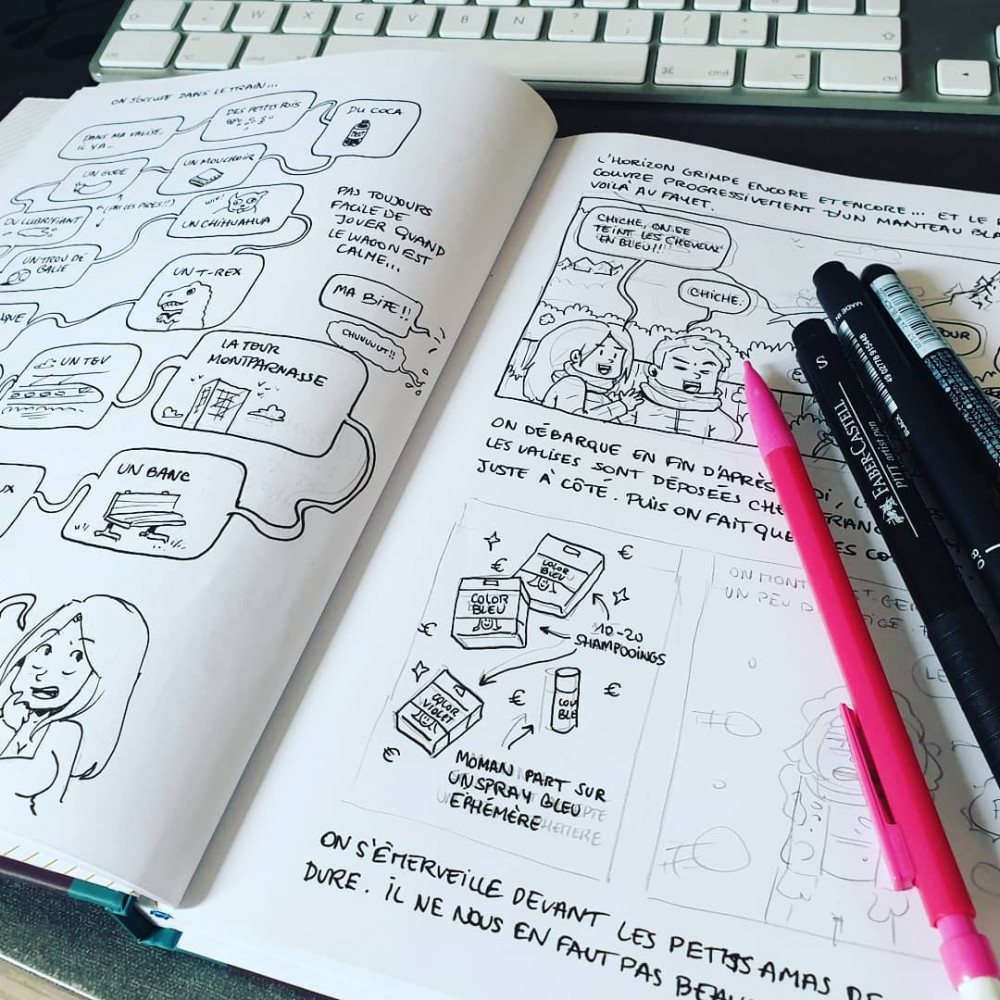 ON S'OCCUPE DANS LE TRAIN...
DANS MA VALISE,
IL Y A...
DES PETITS POIS
DU COCA
UN MOUCHOIR
UN GODE
DU LUBRIFIANT
UN CHIHUAHUA
UN TROU DE
BALLE
UN T-REX
UN TGV
LA TOUR
MONTPARNASSE
UN BANC
PAS TOUJOURS
FACILE DE
JOUER QUAND
LE WAGON EST
CALME...
MA BITE!!
CHUUUUUT!!
L'HORIZON GRIMPE ENCORE ET ENCORE... ET LE
COUVRE PROGRESSIVEMENT D'UN MANTEAU BLA
VOILÀ AU FAYET.
CHICHE, ON SE
TEINT LES CHEVEUX
EN BLEU!!
CHICHE.
ON DÉBARQUE EN FIN D'APRÈS
LES VALISES SONT DÉPOSÉES
JUSTE À CÔTÉ. PUIS ON FAIT
COLOR
BLEU
COLOR
BLEU
10-20
SHAMPOOINGS
COLOR
VIOLET
€
€
€
€
€
€
MOMAN PART SUR
UN SPRAY BLEU
ÉPHÉMÈRE
ON MONT
UN PEU D
ON S'ÉMERVEILLE DEVANT LES PETITS AMAS DE
DURE. IL NE NOUS EN FAUT PAS BEAU
S FABER-CASTELL
PITT artist pen
MADE IN
BLACK
W X C V B N
cmd
ctrl